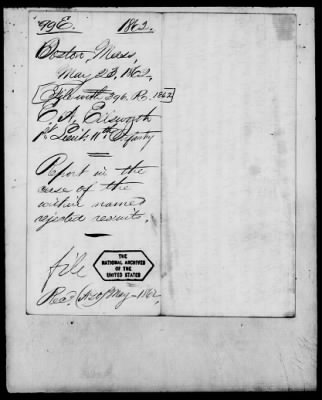 99 E. 1862.
Boston, Mass,
May 23, 1862,
File with 296. R. 1862
C. A. Ellsworth
1st Lieut. 11th Infantry
Report in the
case of the
within named
rejected recruits.
file
THE
NATIONAL ARCHIVES
OF THE
UNITED STATES
Recd. May 1862,